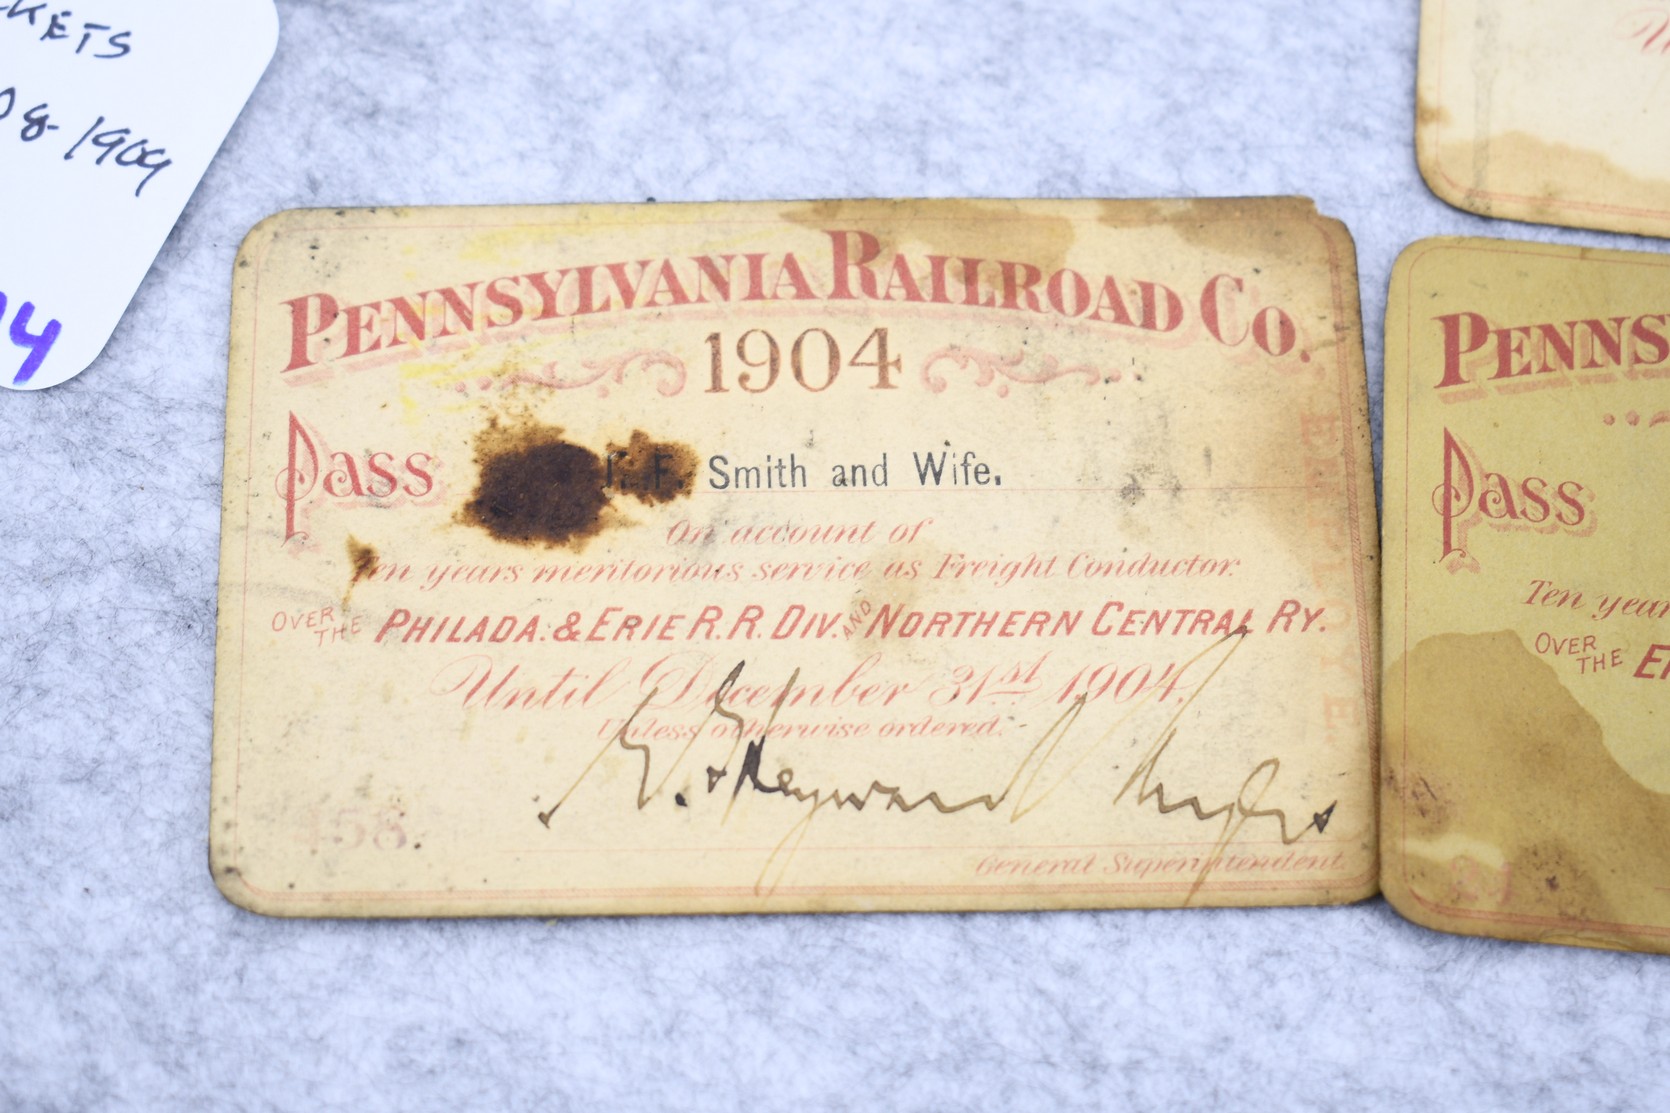 1909
PENNSYLVANIA RAILROAD CO.
1904
Pass F. Smith and Wife.
On account of
Ten years meritorious service as Freight Conductor.
OVER THE PHILADA. & ERIE R.R. DIV. AND NORTHERN CENTRAL RY.
Until December 31st 1904.
Unless otherwise ordered.
General Superintendent.
458.
EMPLOYE
PENNS
Pass
Ten year
OVER THE